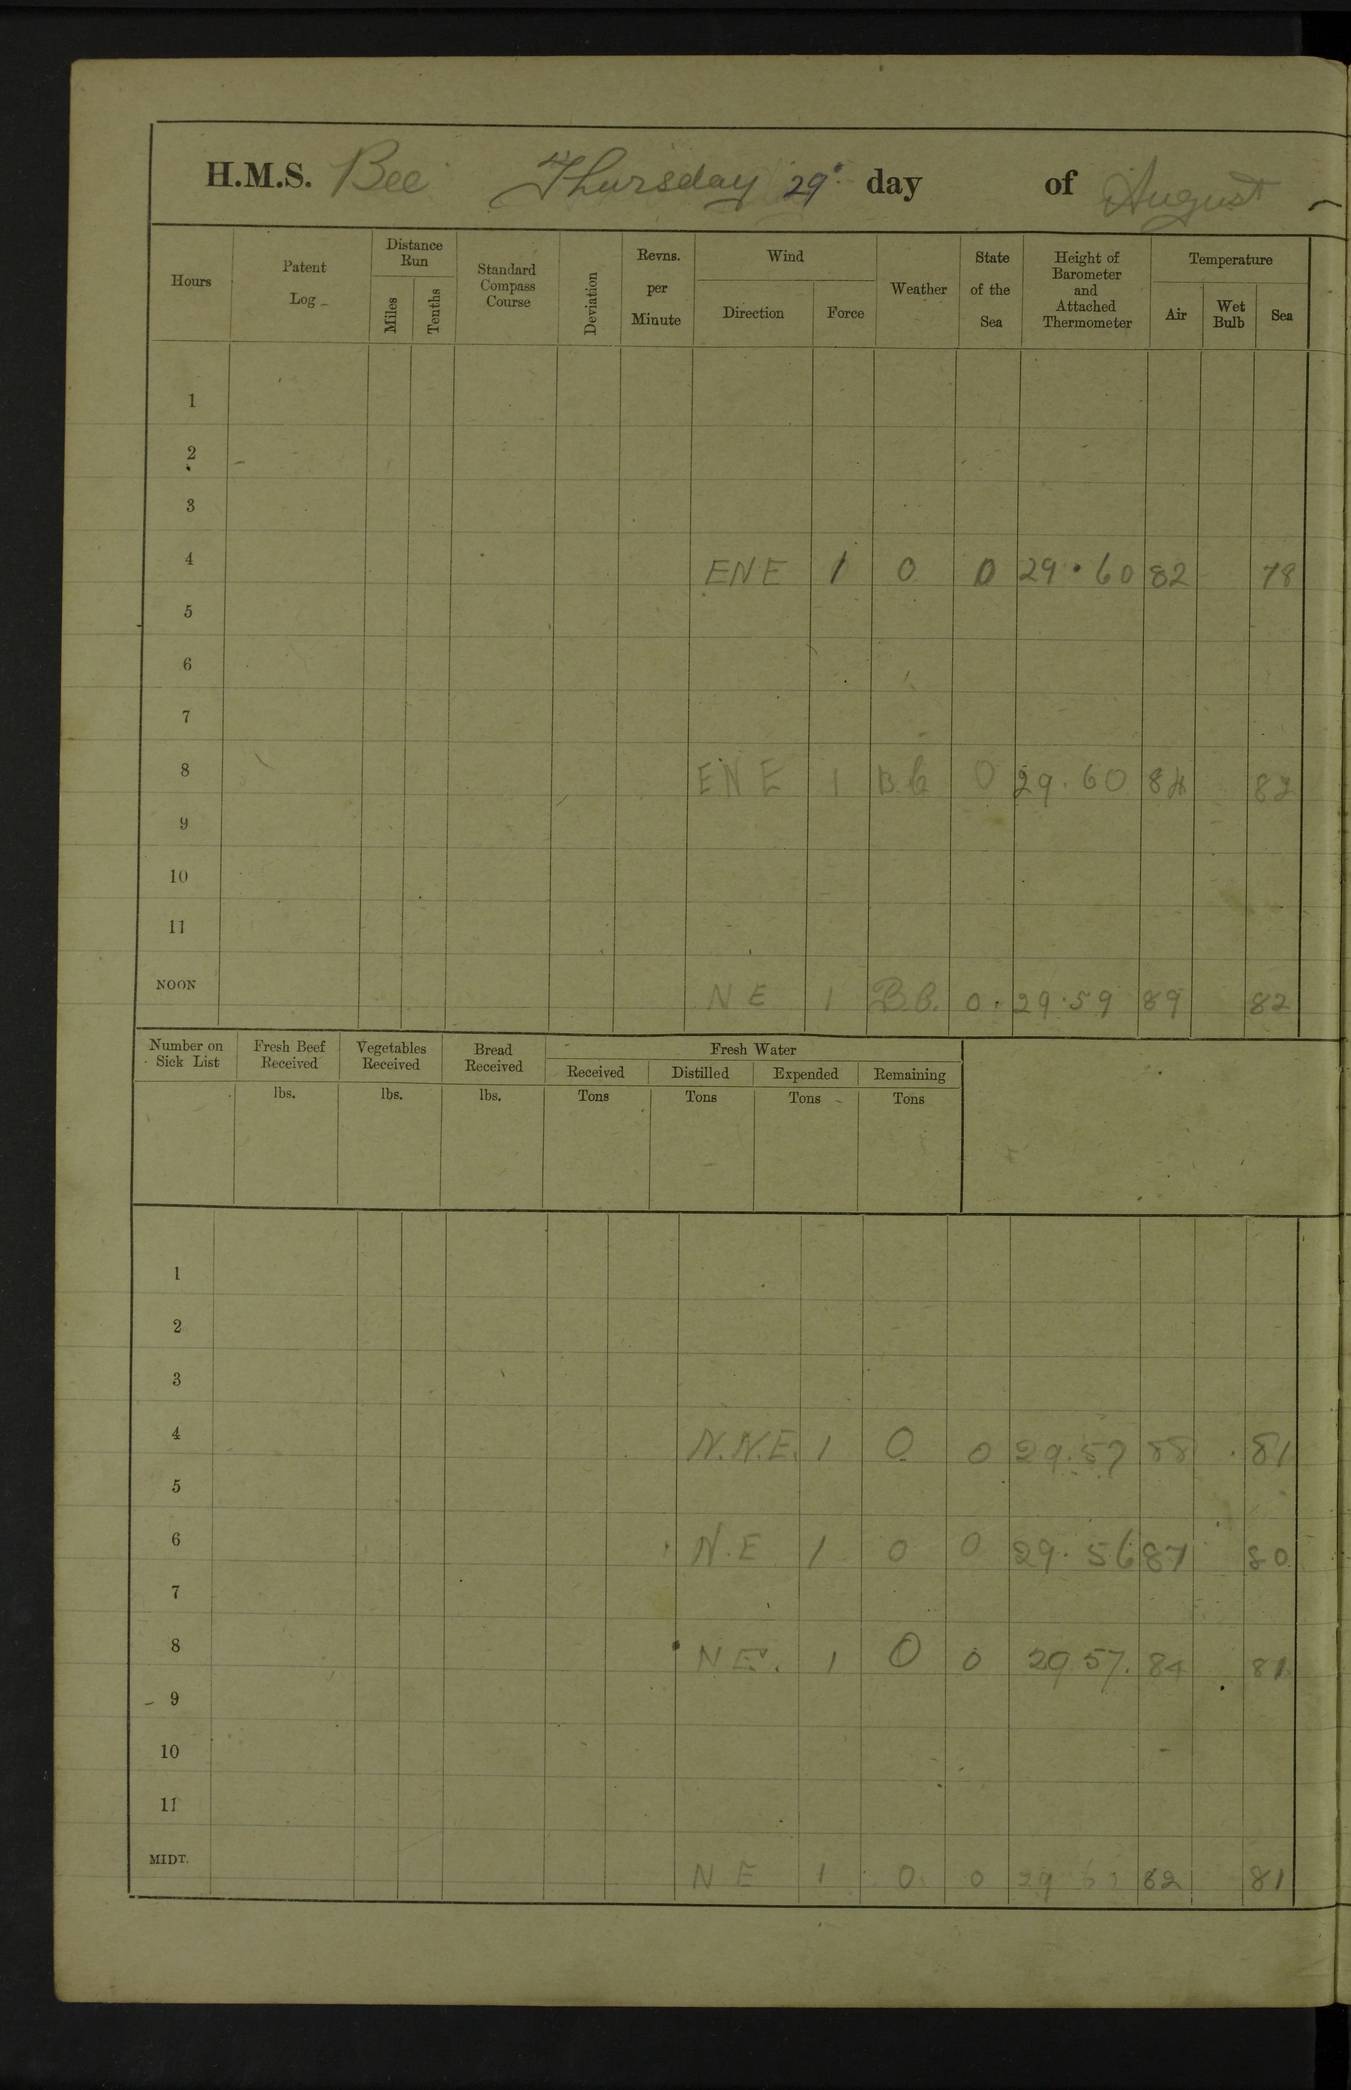 H.M.S. Bee Thursday 29 day of August
Hours Patent Log Distance Run Miles Tenths Standard Compass Course Deviation Revns. per Minute Wind Direction Force Weather State of the Sea Height of Barometer and Attached Thermometer Temperature Air Wet Bulb Sea
1
2
3
4 ENE 1 0 0 29.60 82 78
5
6
7
8 ENE 1 B.C 0 29.60 84 82
9
10
11
NOON NE 1 B.C. 0. 29.59 89 82
Number on Sick List Fresh Beef Received Vegetables Received Bread Received Fresh Water
Received Distilled Expended Remaining
lbs. lbs. lbs. Tons Tons Tons Tons
1
2
3
4 N.N.E. 1 0 0 29.57 88 81
5
6 N.E 1 0 0 29.56 87 80
7
8 NE. 1 0 0 29 57. 84 81
9
10
11
MIDT. NE 1 0 0 29 82 81